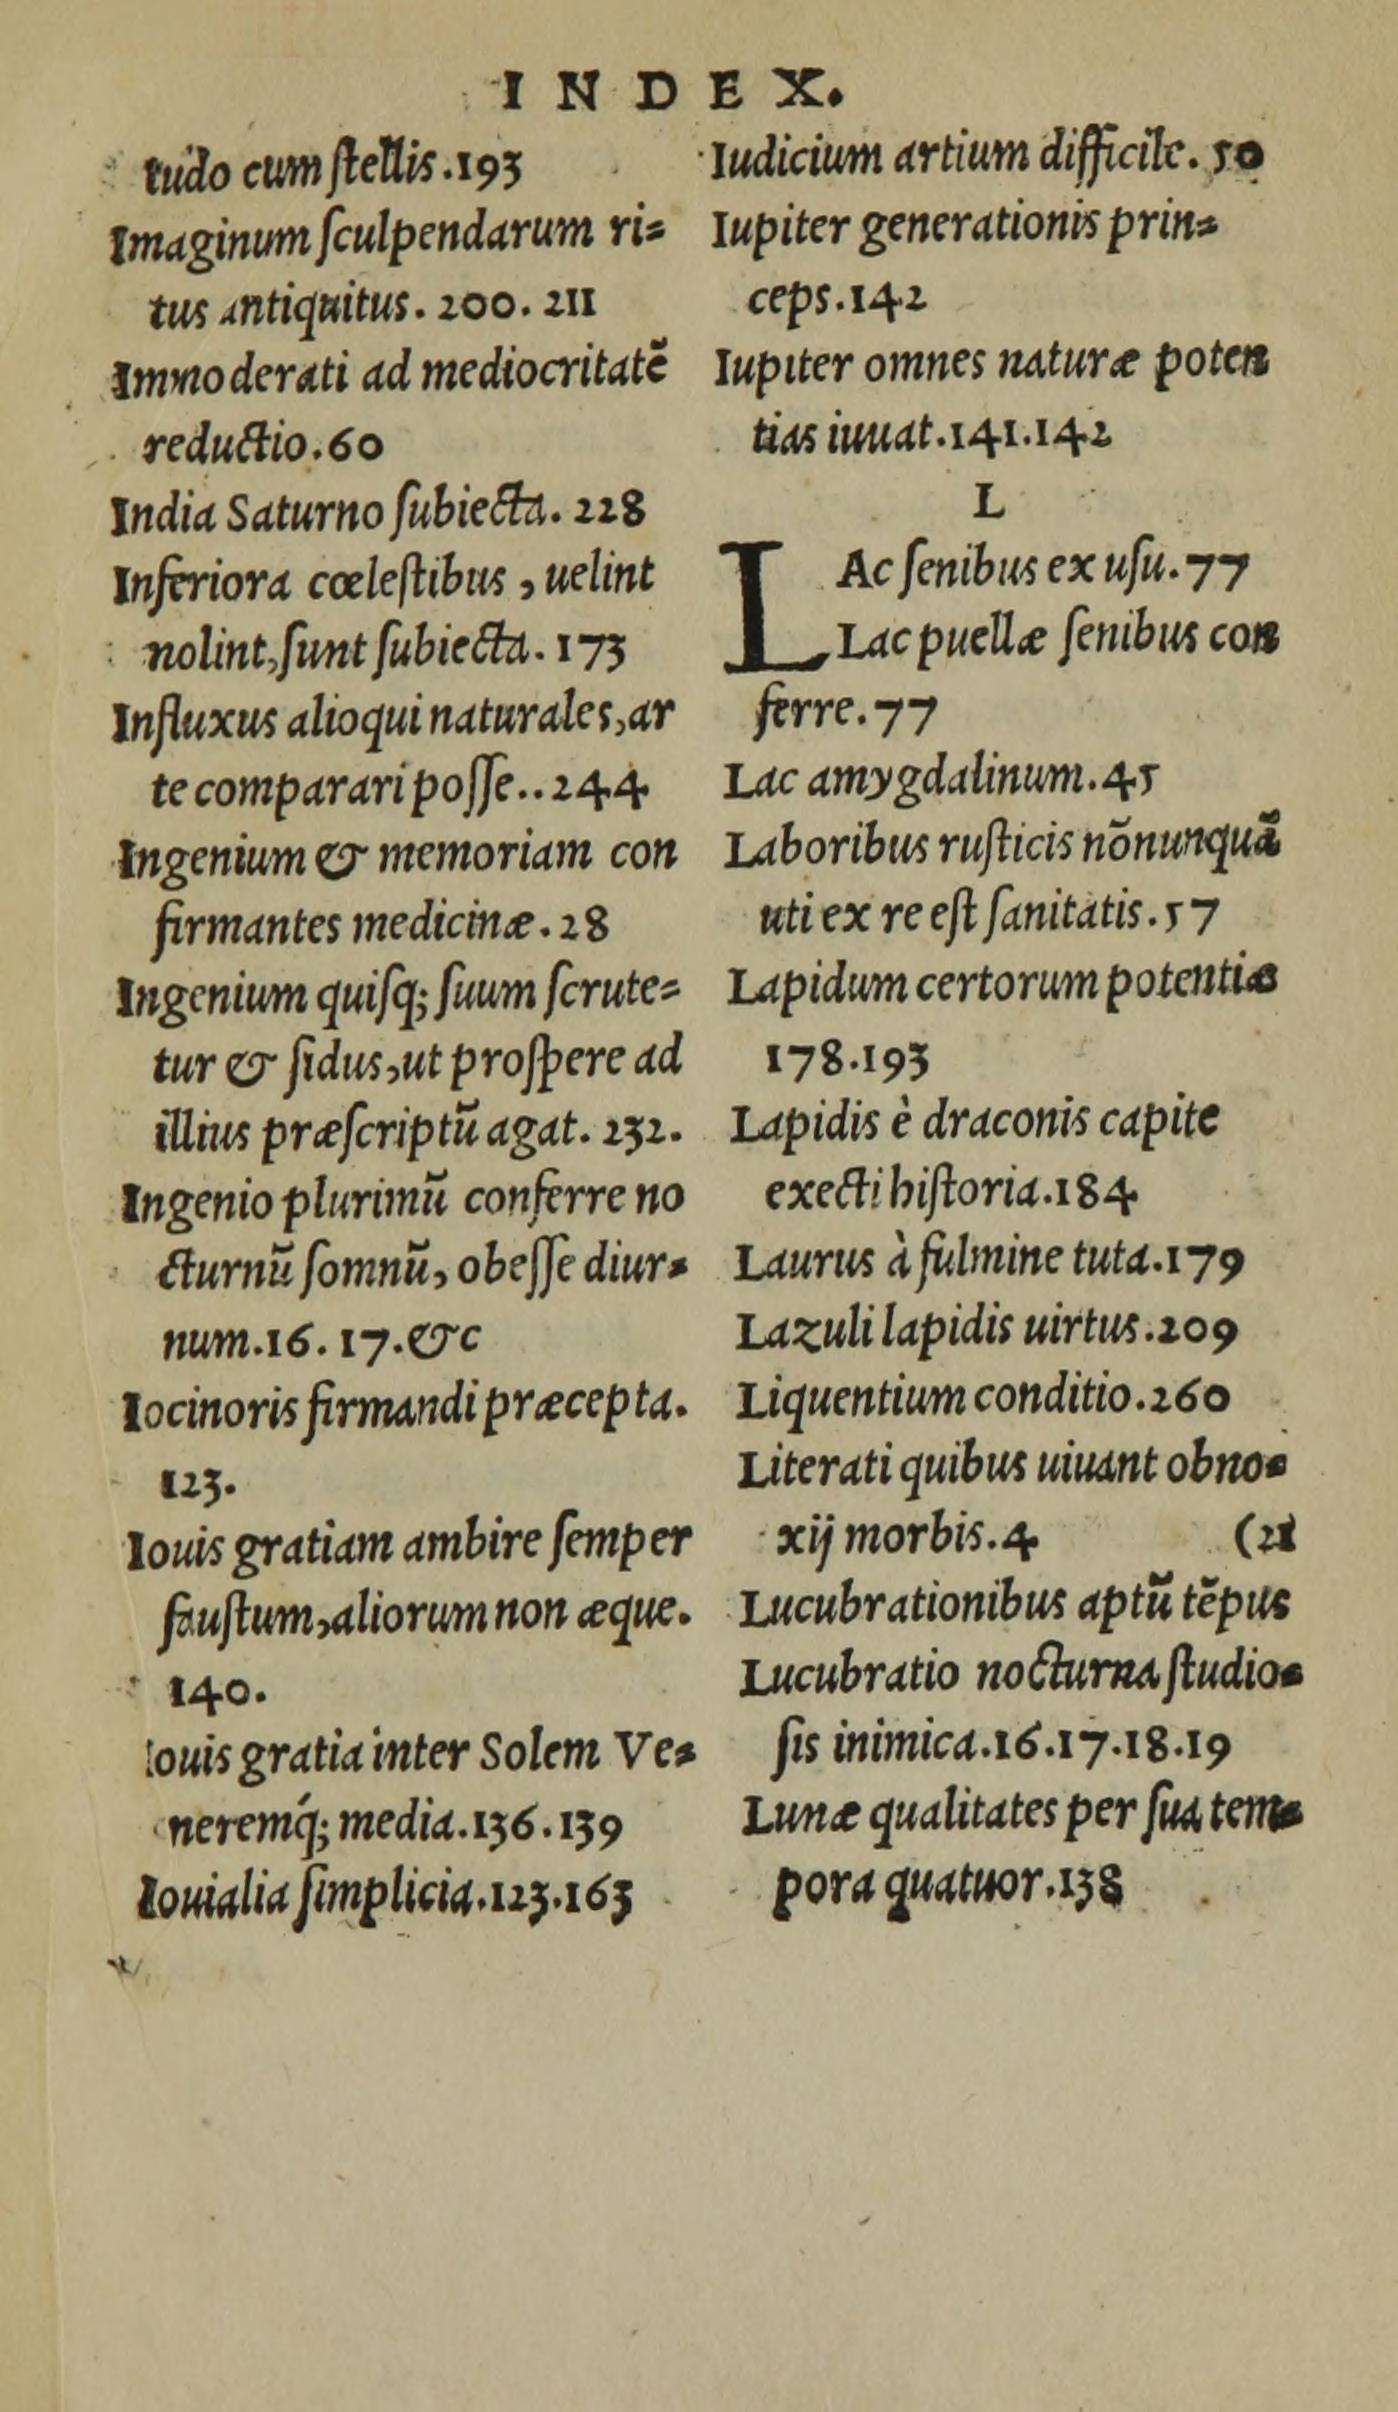 INDEX.
tudo cum ſtellis.193
Imaginum ſculpendarum ri=
tus antiquitus. 200. 211
Immoderati ad mediocritatẽ
reductio.60
India Saturno ſubiecta. 228
Inferiora cœleſtibus, uelint
nolint, ſunt ſubiecta. 173
Influxus alioqui naturales, ar
te comparari poſſe..244
Ingenium & memoriam con
firmantes medicinæ.28
Ingenium quiſq; ſuum ſcrute=
tur & ſidus, ut proſpere ad
illius præſcriptũ agat. 232.
Ingenio plurimũ conferre no
cturnũ ſomnũ, obeſſe diur=
num.16. 17.&c
Iocinoris firmandi præcepta.
123.
Iouis gratiam ambire ſemper
fauſtum, aliorum non æque.
140.
Iouis gratia inter Solem Ve=
neremq́; media.136.139
Iouialia ſimplicia.123.163
Iudicium artium difficile. 50
Iupiter generationis prin=
ceps.142
Iupiter omnes naturæ poten
tias iuuat.141.142
L
LAc ſenibus ex uſu.77
Lac puellæ ſenibus con
ferre.77
Lac amygdalinum.45
Laboribus ruſticis nõnunquã
uti ex re eſt ſanitatis.57
Lapidum certorum potentiæ
178.193
Lapidis è draconis capite
execti hiſtoria.184
Laurus à fulmine tuta.179
Lazuli lapidis uirtus.209
Liquentium conditio.260
Literati quibus uiuant obno=
xij morbis.4 (21
Lucubrationibus aptũ tẽpus
Lucubratio nocturna ſtudio=
ſis inimica.16.17.18.19
Lunæ qualitates per ſua tem=
pora quatuor.138